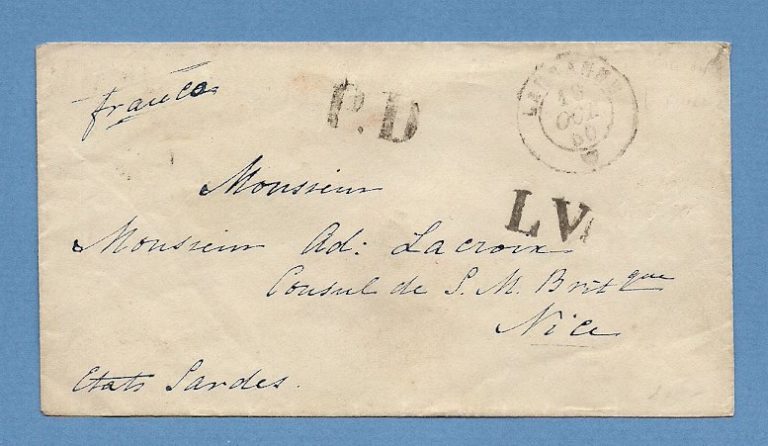 franco
P.D
LAUSANNE
OCT
Monsieur
L V.
Monsieur Ad: Lacroix
Consul de S. M. Britque
Nice
Etats Sardes.